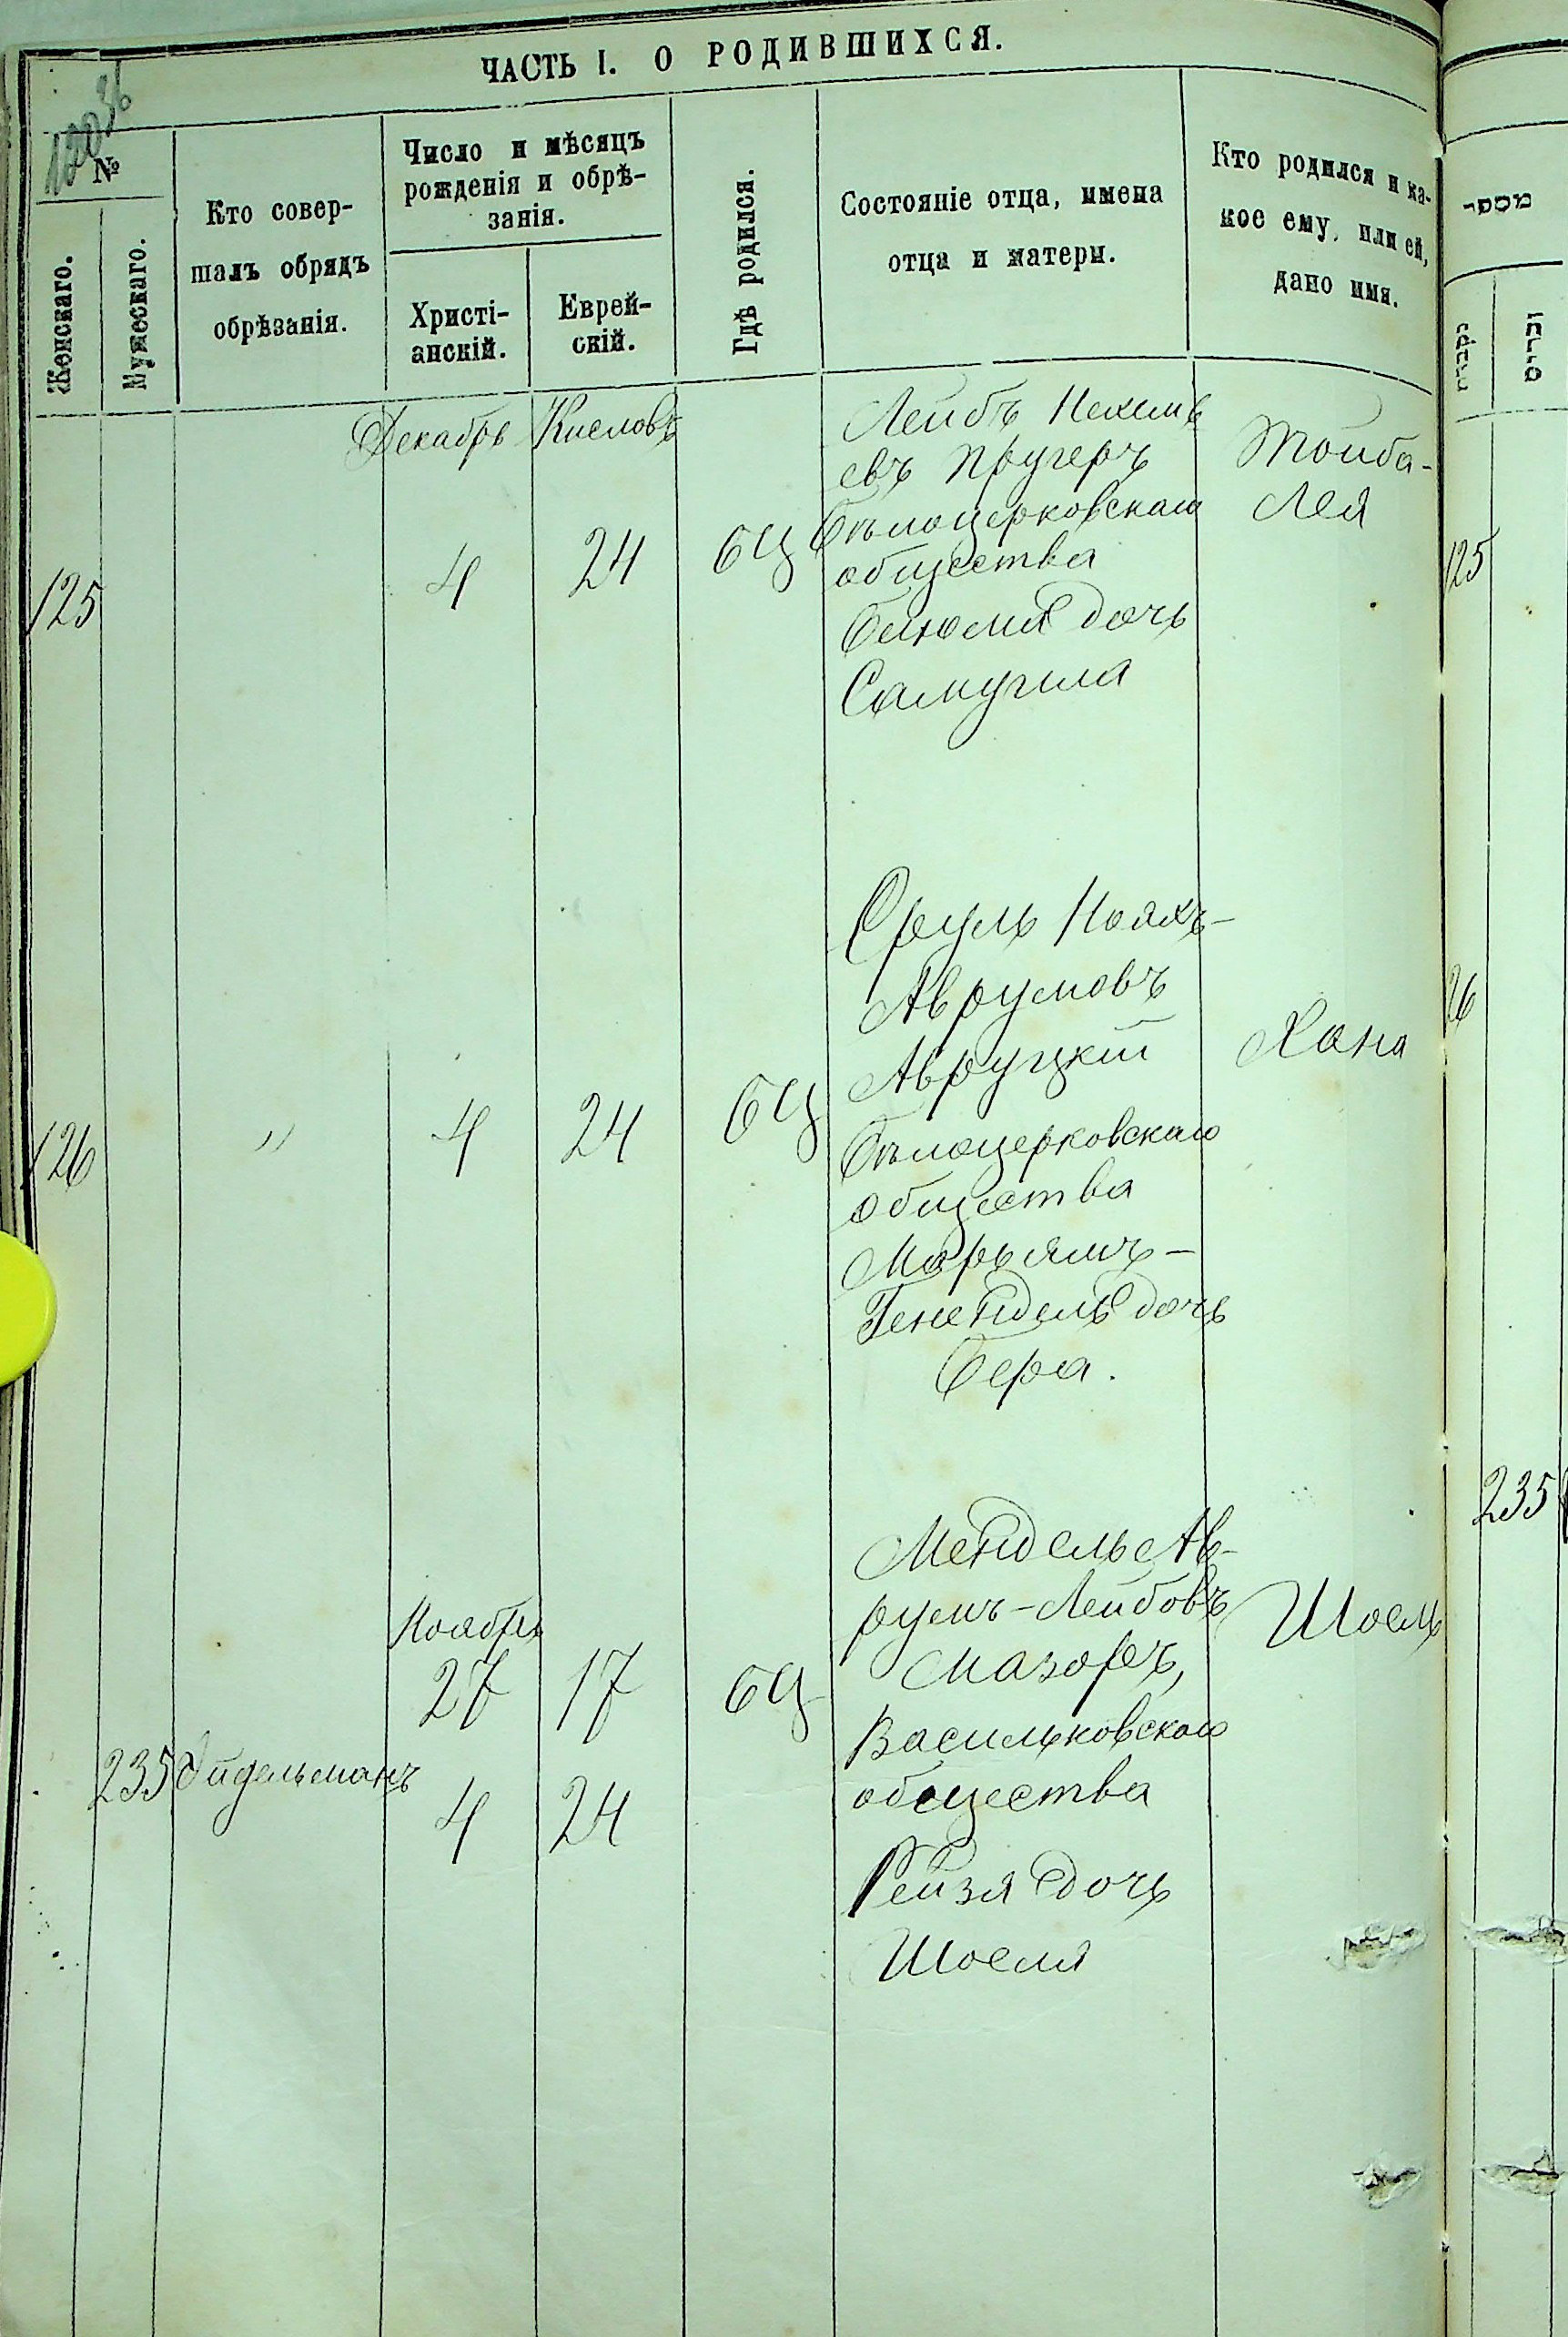 ЧАСТЬ I. О РОДИВШИХСЯ.
№
Женскаго.
Мужескаго.
Кто совер-
шалъ обрядъ
обрѣзанія.
Число и мѣсяцъ
рожденія и обрѣ-
занія.
Христі-
анскій.
Еврей-
скій.
Гдѣ родился.
Состояніе отца, имена
отца и матери.
Кто родился и ка-
кое ему, или ей,
дано имя.
מספר
נקבות
זכרים
Декабрь Кислевъ
125
4
24
БЦ
Лейбъ Нехемь
евъ Пругеръ
Бѣлоцерковскаго
общества
Блюмя дочь
Самуила
Тойба-
Лея
125
126
"
4
24
БЦ
Сруль Нояхъ-
Аврумовъ
Авруцкій
Бѣлоцерковскаго
общества
Марьямъ-
Генендель дочь
Бера.
Хана
26
235
Эйдельманъ
Ноябрь
27
17
4
24
БЦ
Мендель Ав-
румъ-Лейбовъ
Мазоръ,
Васильковскаго
общества
Рейзя дочь
Шоеля
Шоель
235